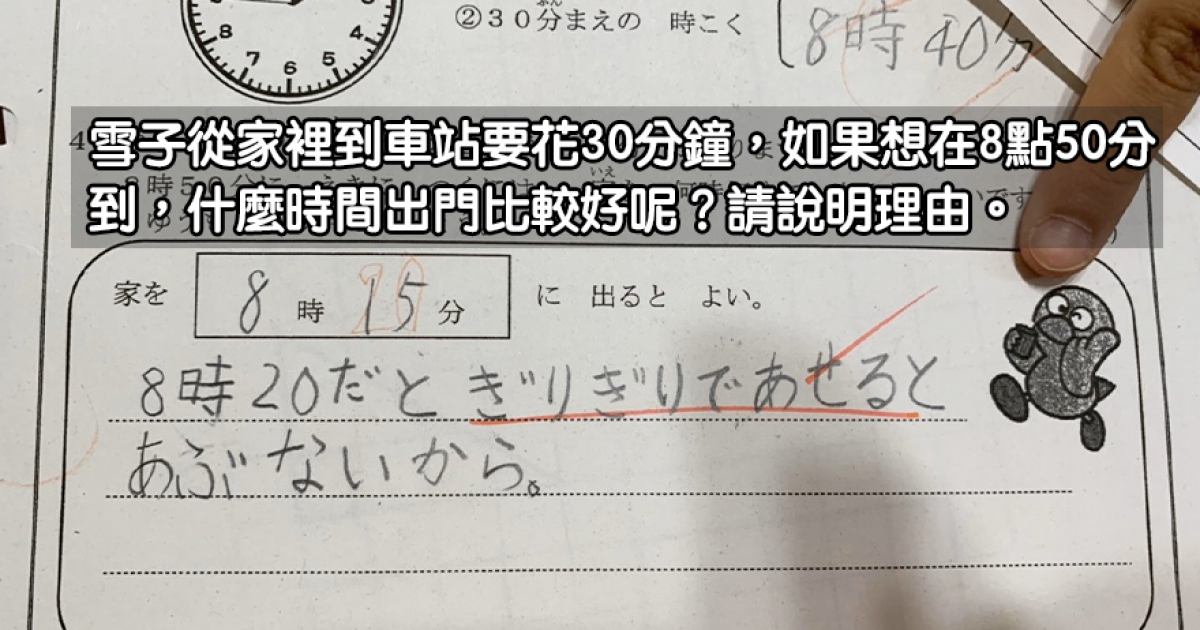 8
4
7
5
6
②30分まえの 時こく
ぷん
8時40分
4
雪子從家裡到車站要花30分鐘，如果想在8點50分
到，什麼時間出門比較好呢？請說明理由。
家を 8時 15 分 に 出ると よい。
20
8時20だと ぎりぎりであせると
あぶないから。